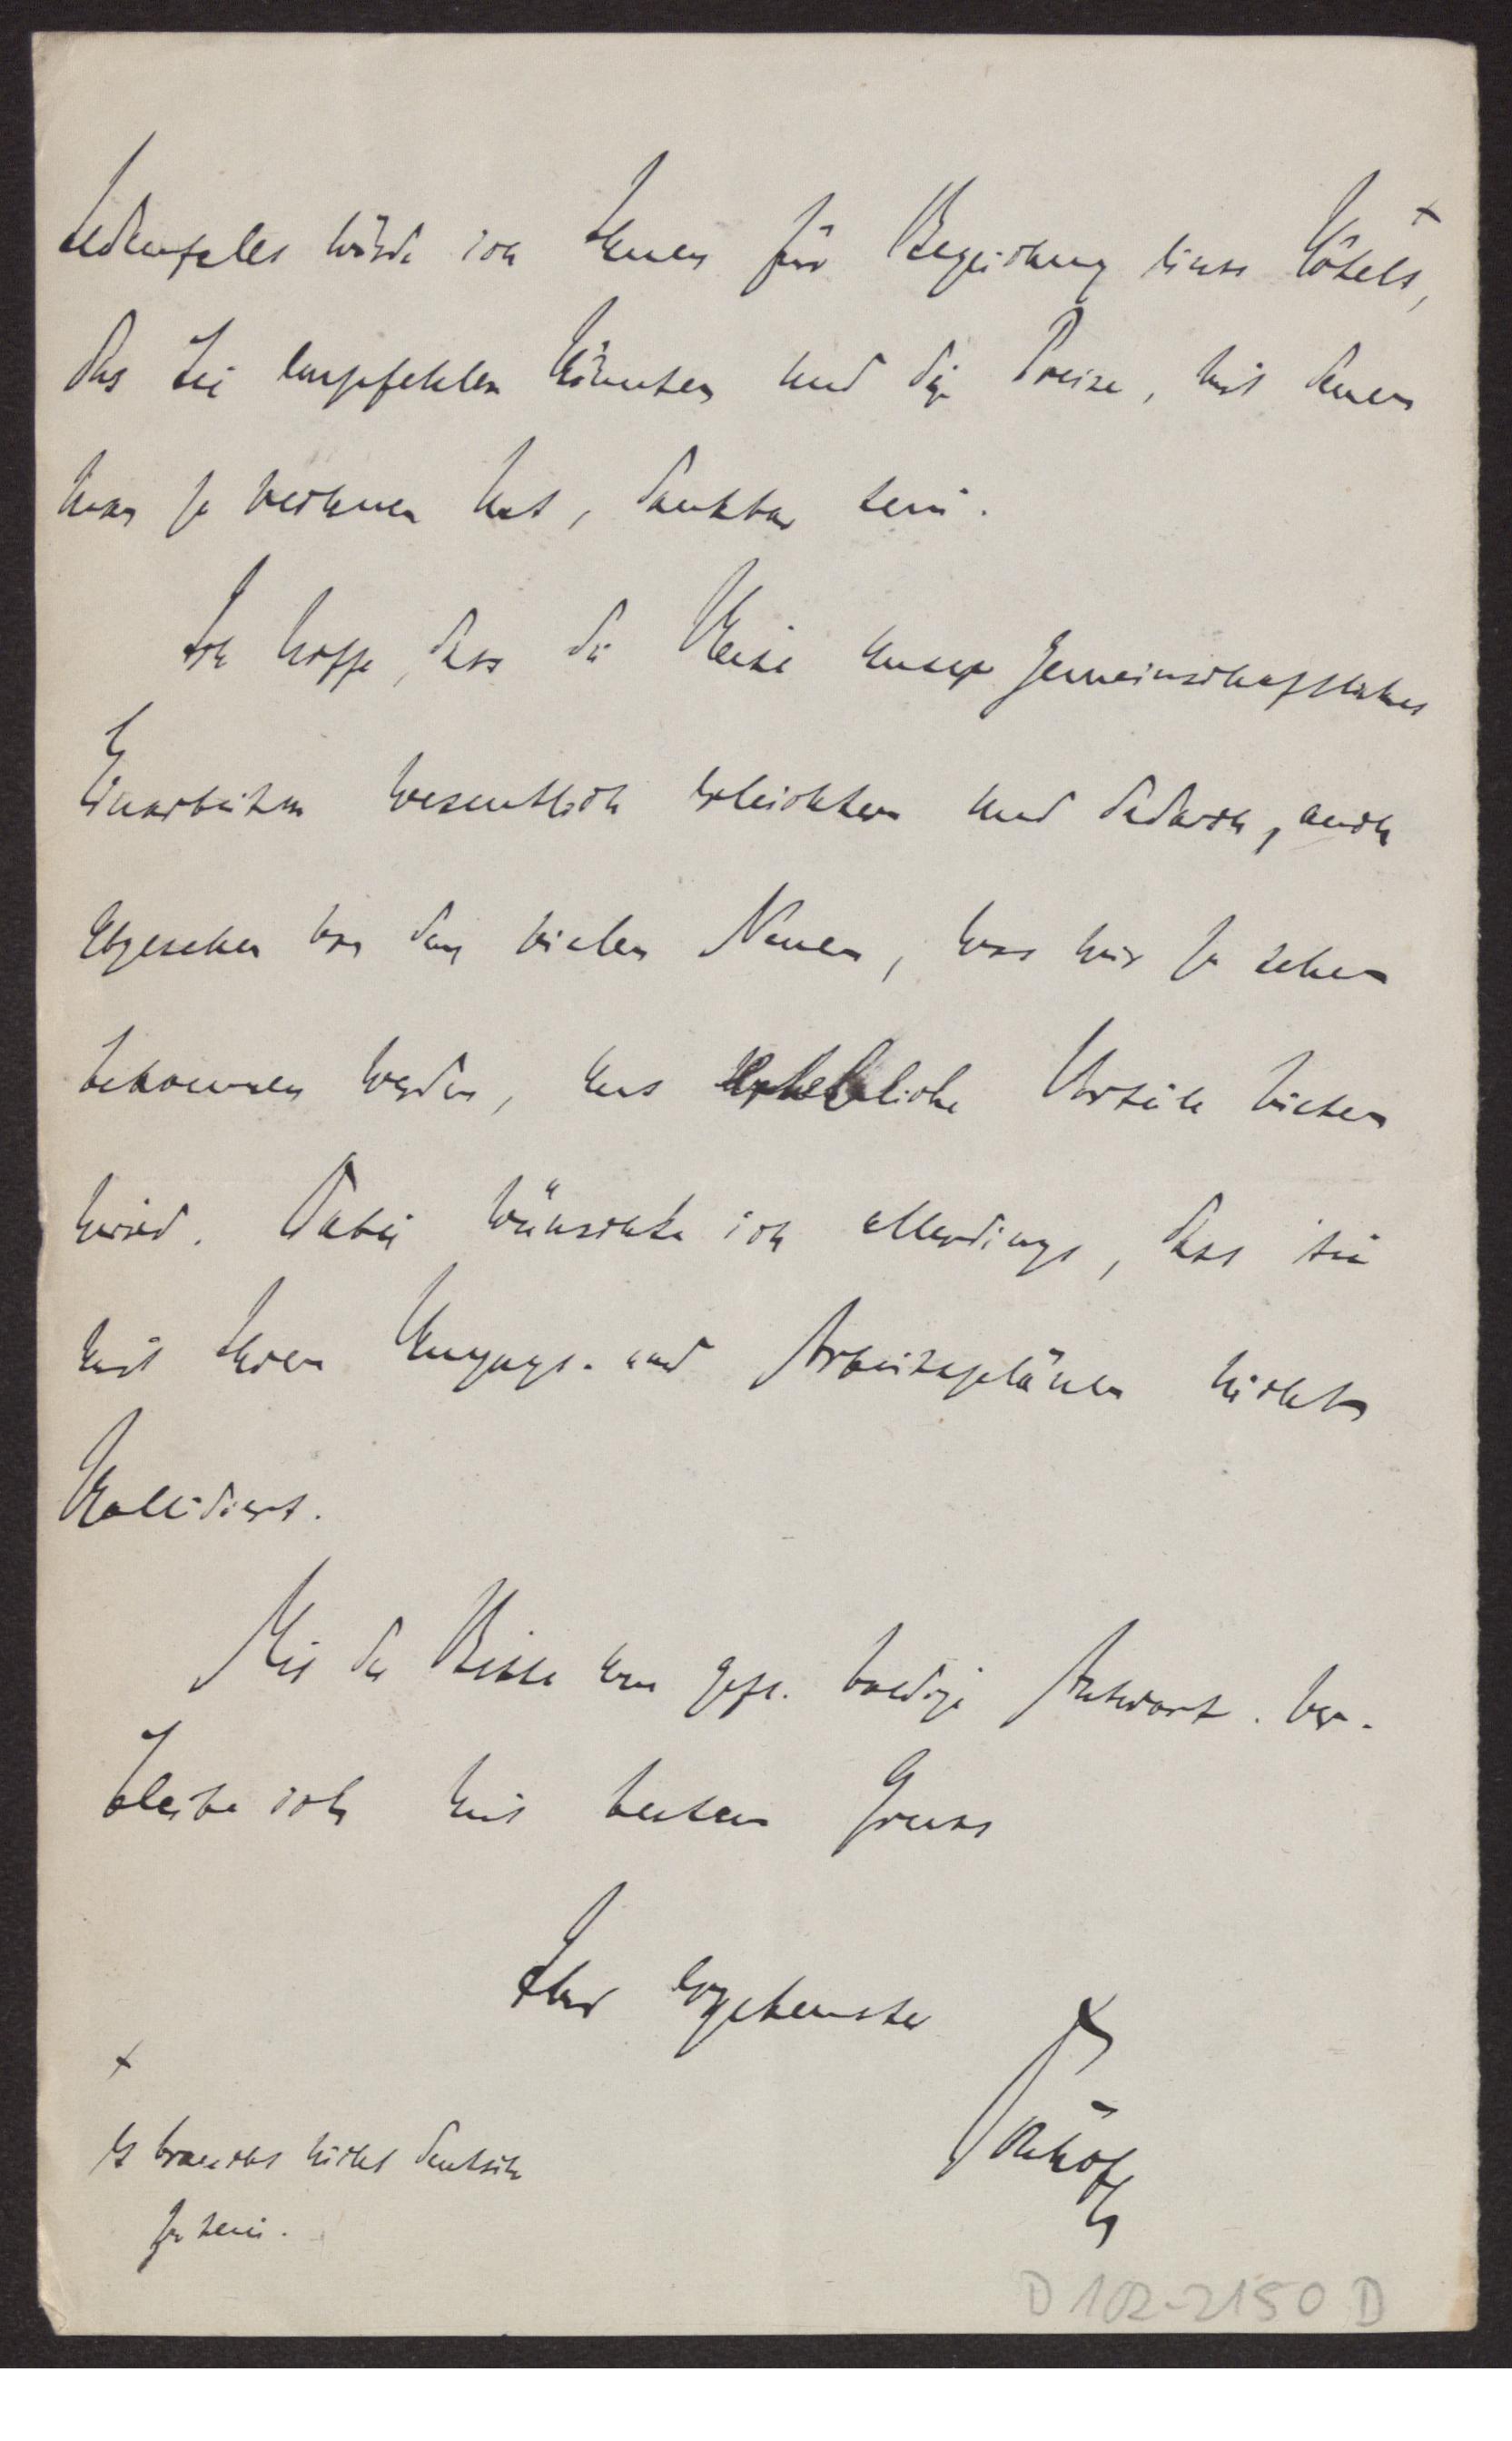 Jedenfalls würde ich Ihnen für Bezeichnung eines Hôtels, +
das Sie empfehlen könnten und die Preise, mit denen
man zu rechnen hat, dankbar sein.
Ich hoffe, dass die Reise unser gemeinschaftliches
Einarbeiten wesentlich erleichtern und dadurch, auch
abgesehen von dem vielen Neuen, was wir zu sehen
bekommen werden, uns erhebliche Vorteile bieten
wird. Dabei wünschte ich allerdings, dass sie
mit Ihren Umzugs- und Arbeitsplänen nicht
kollidiert.
Mit der Bitte um gefl. baldige Antwort ver-
bleibe ich mit bestem Gruss
Ihr ergebenster
+
Es braucht nicht deutsch
zu sein.
D 102-2150 D